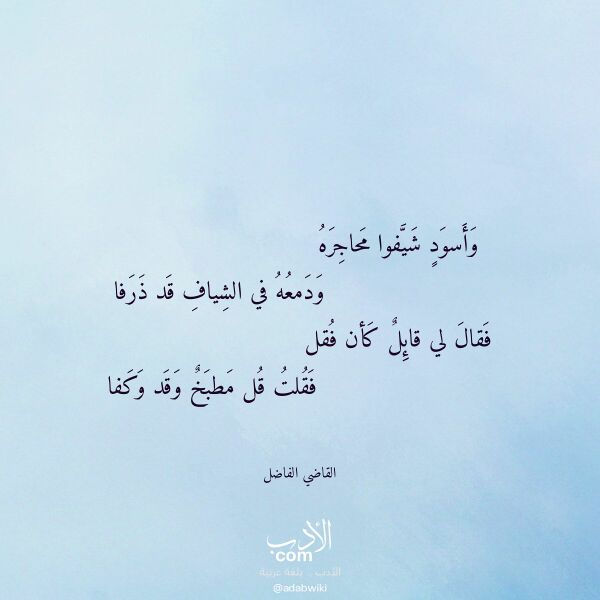 وَأَسوَدٍ شَيَّفوا مَحاجِرَهُ
وَدَمعُهُ في الشِيافِ قَد ذَرَفا
فَقالَ لي قائِلٌ كَأن فُقل
فَقُلتُ قُل مَطبَخٌ وَقَد وَكَفا
القاضي الفاضل
الأدب
com
الأدب .. بلغة عربية
@adabwiki